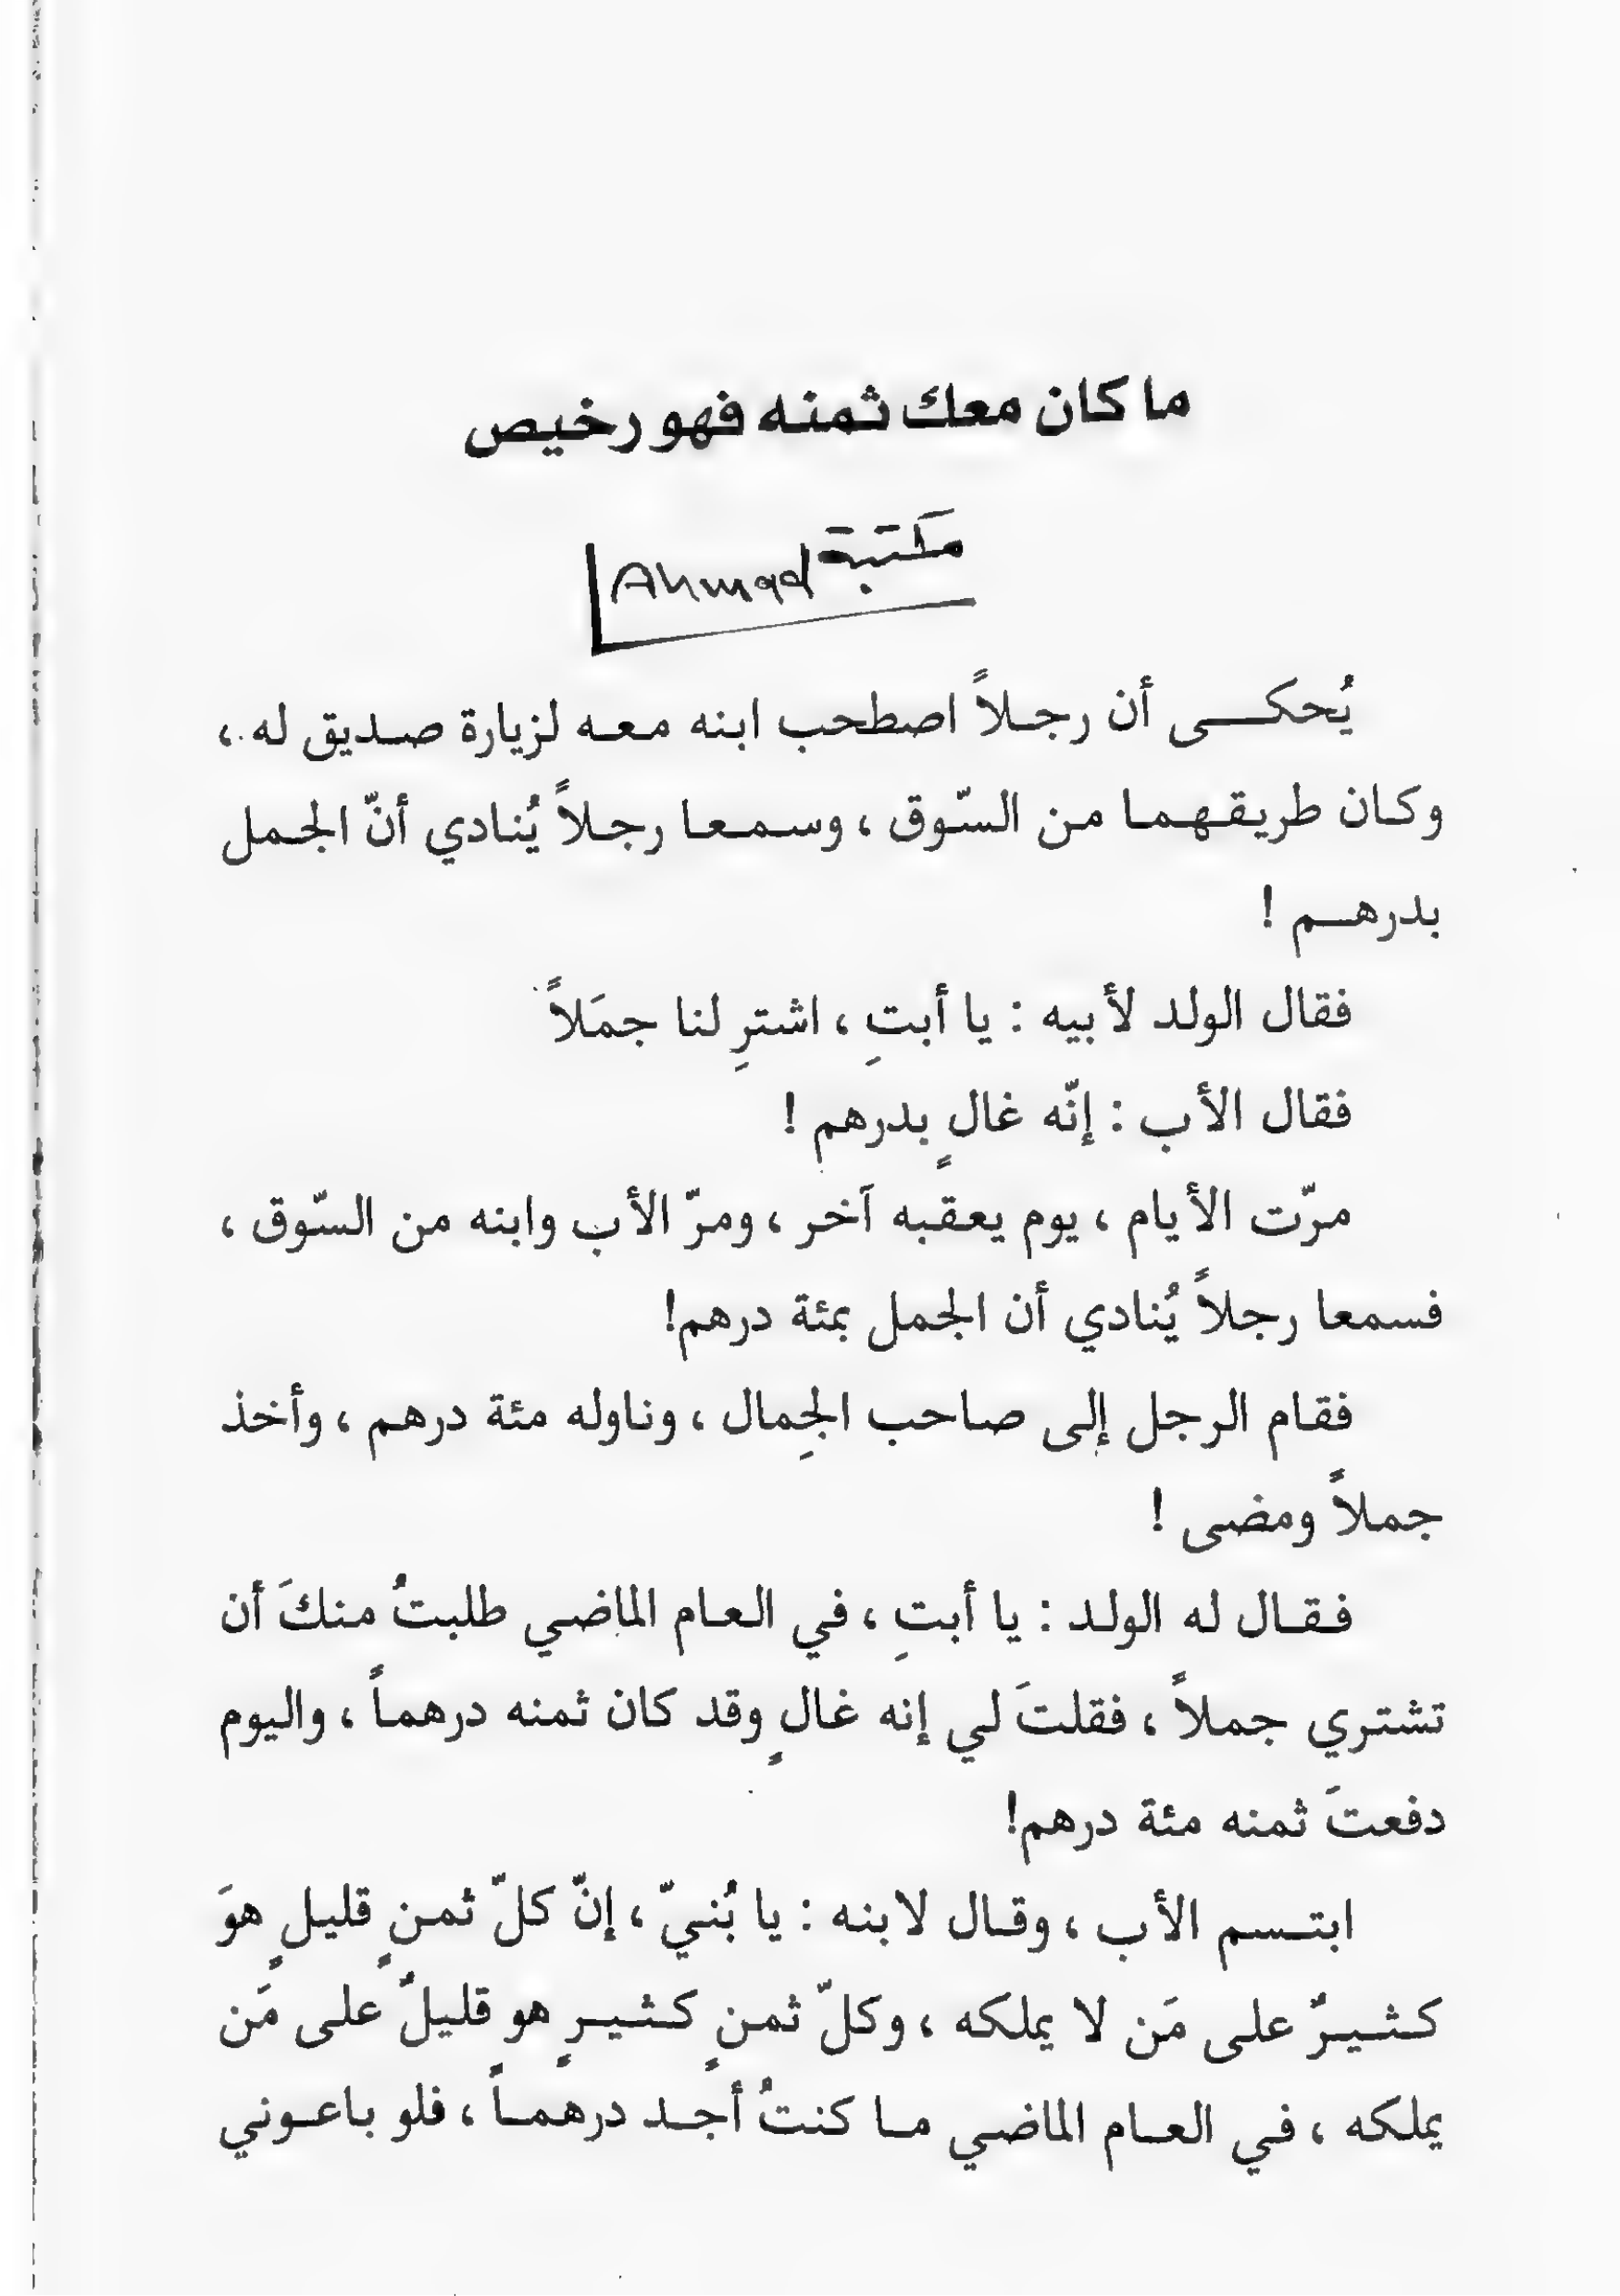 ما كان معك ثمنه فهو رخيص
مكتبة Ahmad
يُحكى أن رجلاً اصطحب ابنه معه لزيارة صديق له ،
وكان طريقهما من السّوق ، وسمعا رجلاً يُنادي أنّ الجمل
بدرهم !
فقال الولد لأبيه : يا أبتِ ، اشترِ لنا جمَلاً
فقال الأب : إنّه غالٍ بدرهم !
مرّت الأيام ، يوم يعقبه آخر ، ومرّ الأب وابنه من السّوق ،
فسمعا رجلاً يُنادي أن الجمل بمئة درهم!
فقام الرجل إلى صاحب الجِمال ، وناوله مئة درهم ، وأخذ
جملاً ومضى !
فقال له الولد : يا أبتِ ، في العام الماضي طلبتُ منكَ أن
تشتري جملاً ، فقلتَ لي إنه غالٍ وقد كان ثمنه درهماً ، واليوم
دفعتَ ثمنه مئة درهم!
ابتسم الأب ، وقال لابنه : يا بُنيّ ، إنّ كلّ ثمنٍ قليلٍ هوَ
كثيرٌ على مَن لا يملكه ، وكلّ ثمنٍ كثيرٍ هو قليلٌ على مَن
يملكه ، في العام الماضي ما كنتُ أجد درهماً ، فلو باعوني